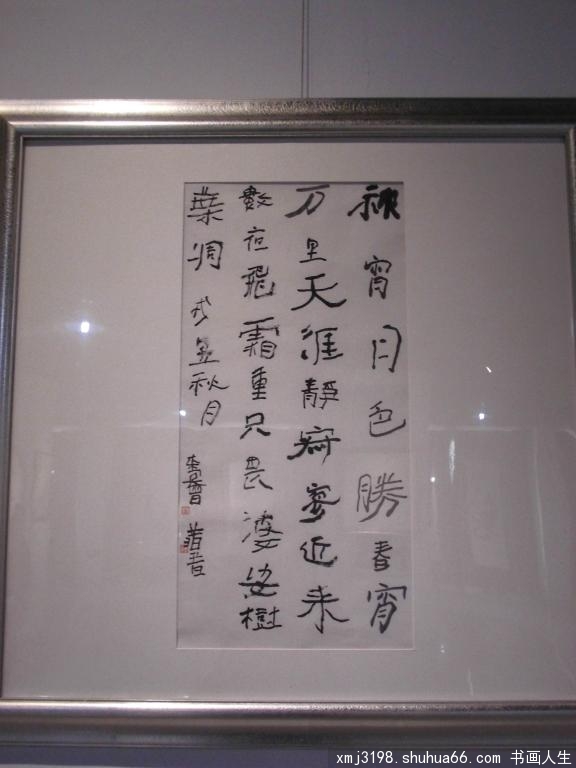 秋宵月色勝春宵
万里天涯靜寂寥近来
數夜飛霜重只畏婆娑樹
葉凋 秋月
xmj3198.shuhua66.com 书画人生